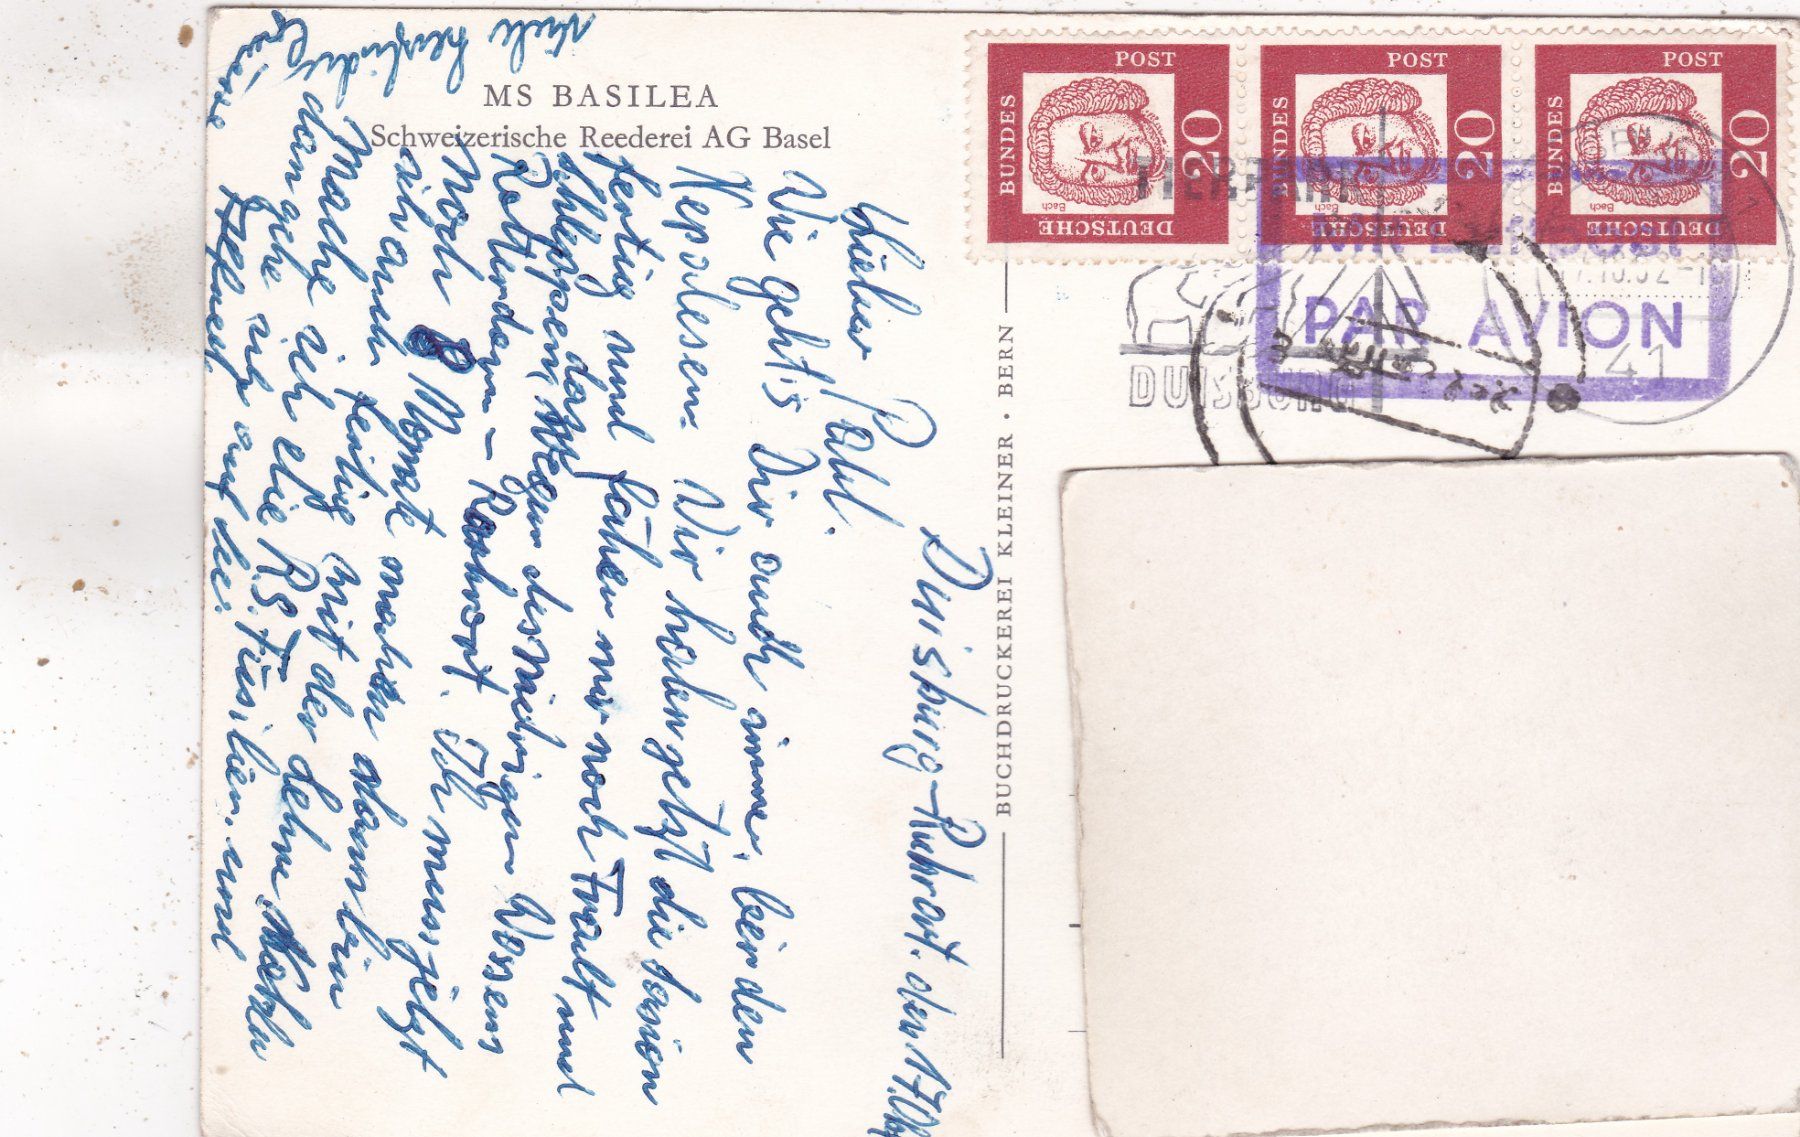 MS BASILEA
Schweizerische Reederei AG Basel
BUCHDRUCKEREI KLEINER · BERN
DEUTSCHE BUNDES POST 20
Bach
DEUTSCHE BUNDES POST 20
Bach
DEUTSCHE BUNDES POST 20
Bach
TIERPARK
DUISBURG
Mit Luftpost
PAR AVION
41
Duisburg-Ruhrort. den 17.
Lieber Pahl.
Wie geht's Dir auch immer, bei den
Nepalesen. Wir haben jetzt die Saison
fertig und fahren nur noch Fracht und
schleppen, dazu wegen des niedrigen Wassers
Rotterdam - Ruhrort. Ich muss jetzt
noch 8 Monate machen dann bin
ich auch fertig mit der Lehre. Nachher
mache ich die RS. Füsilier. und
dann gehe ich
Viele herzliche
Grüsse